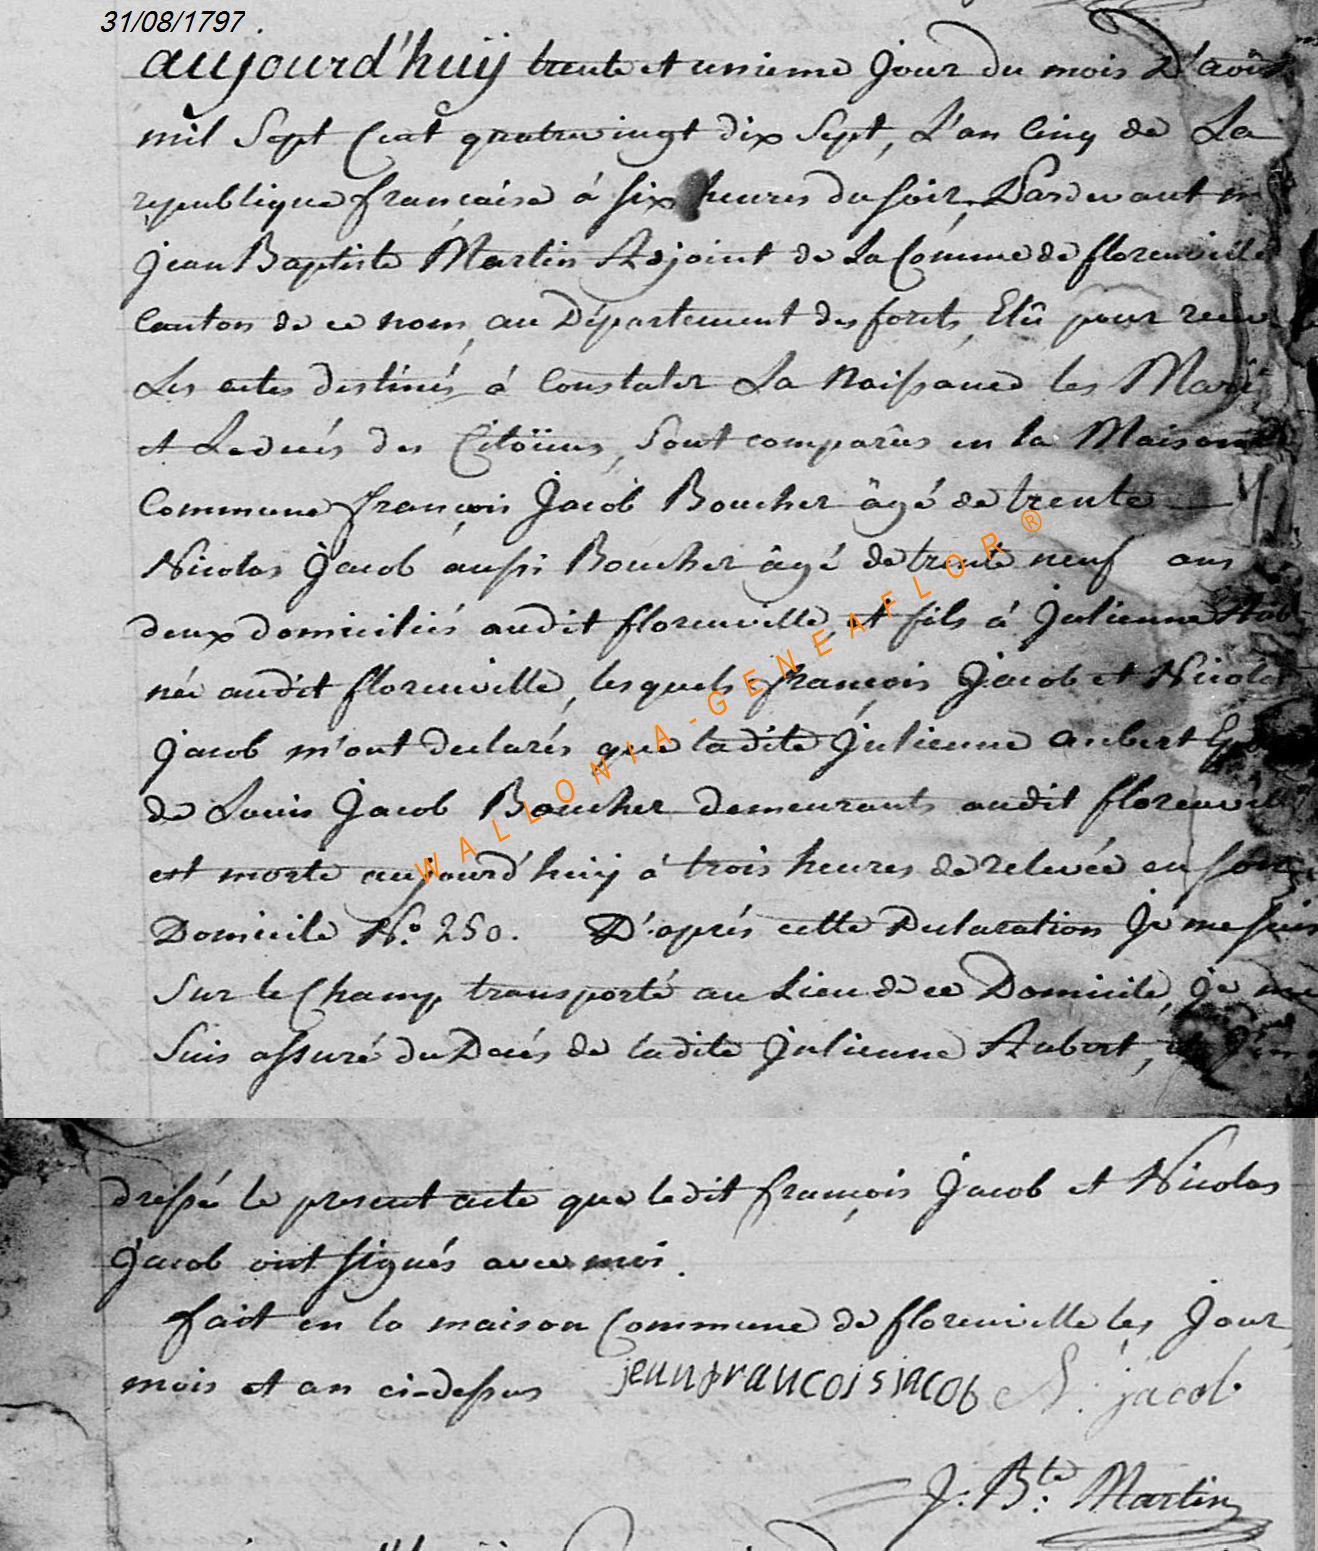 31/08/1797
aujourd'huÿ trente et unieme jour du mois D'août
mil Sept Cent quatrevingt dix Sept, L'an Cinq de La
republique française á six heures du soir, Pardevant
jean Baptiste Martin Adjoint de La Commune de florenville
Canton de ce nom, au Département des forets, Elû pour
Les actes destinés á Constater La Naissance les
et Le decés des Citoïens, sont comparûs en la Maison
Commune françois Jacob Boucher âgé de trente
Nicolas Jacob aussi Boucher âgé de trente neuf ans
deux domiciliés audit florenville, et fils á Julienne
née audit florenville, lesquels françois Jacob et Nicolas
jacob m'ont declarés que ladite Julienne aubert
de Louis Jacob Boucher demeurants audit florenville
est morte aujourd'huy á trois heures de relevée en son
Domicile N.o 250. D'aprés cette Declaration Je me suis
Sur le Champ transporté au Lieu de ce Domicile, je me
Suis assuré du Decés de ladite Julienne Aubert,
dressé le present acte que ledit françois Jacob et Nicolas
Jacob ont signés avec moi.
fait en la maison Commune de florenville les Jour,
mois et an ci-dessus jeanfrancois jacob N. jacob
J. B.te Martin
WALLONIA-GENEAFLOR ®